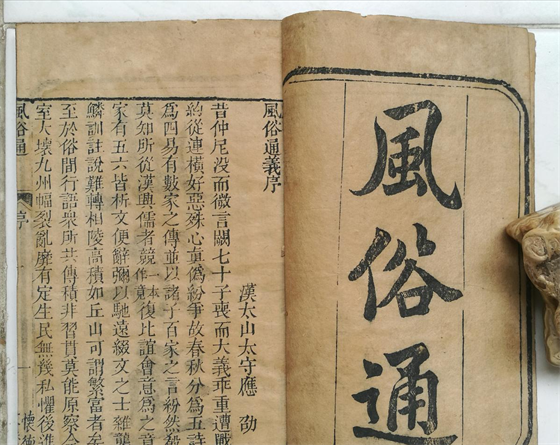 風俗通
風俗通義序
漢太山太守應 劭
昔仲尼没而微言闕七十子喪而大義乖重遭戰
約從連橫好惡殊心真僞紛爭故春秋分爲五詩
爲四易有數家之傳並以諸子百家之言紛然
莫知所從漢興儒者競一本作竟復比誼會意爲之
家有五六皆析文便辭彌以馳遠綴文之士雜
鱗訓註說難轉相陵高積如丘山可謂繁富者矣
至於俗間行語衆所共傳積非習貫莫能原察今
室大壞九州幅裂亂靡有定生民無幾私懼後進
風俗通 序 一 懷德